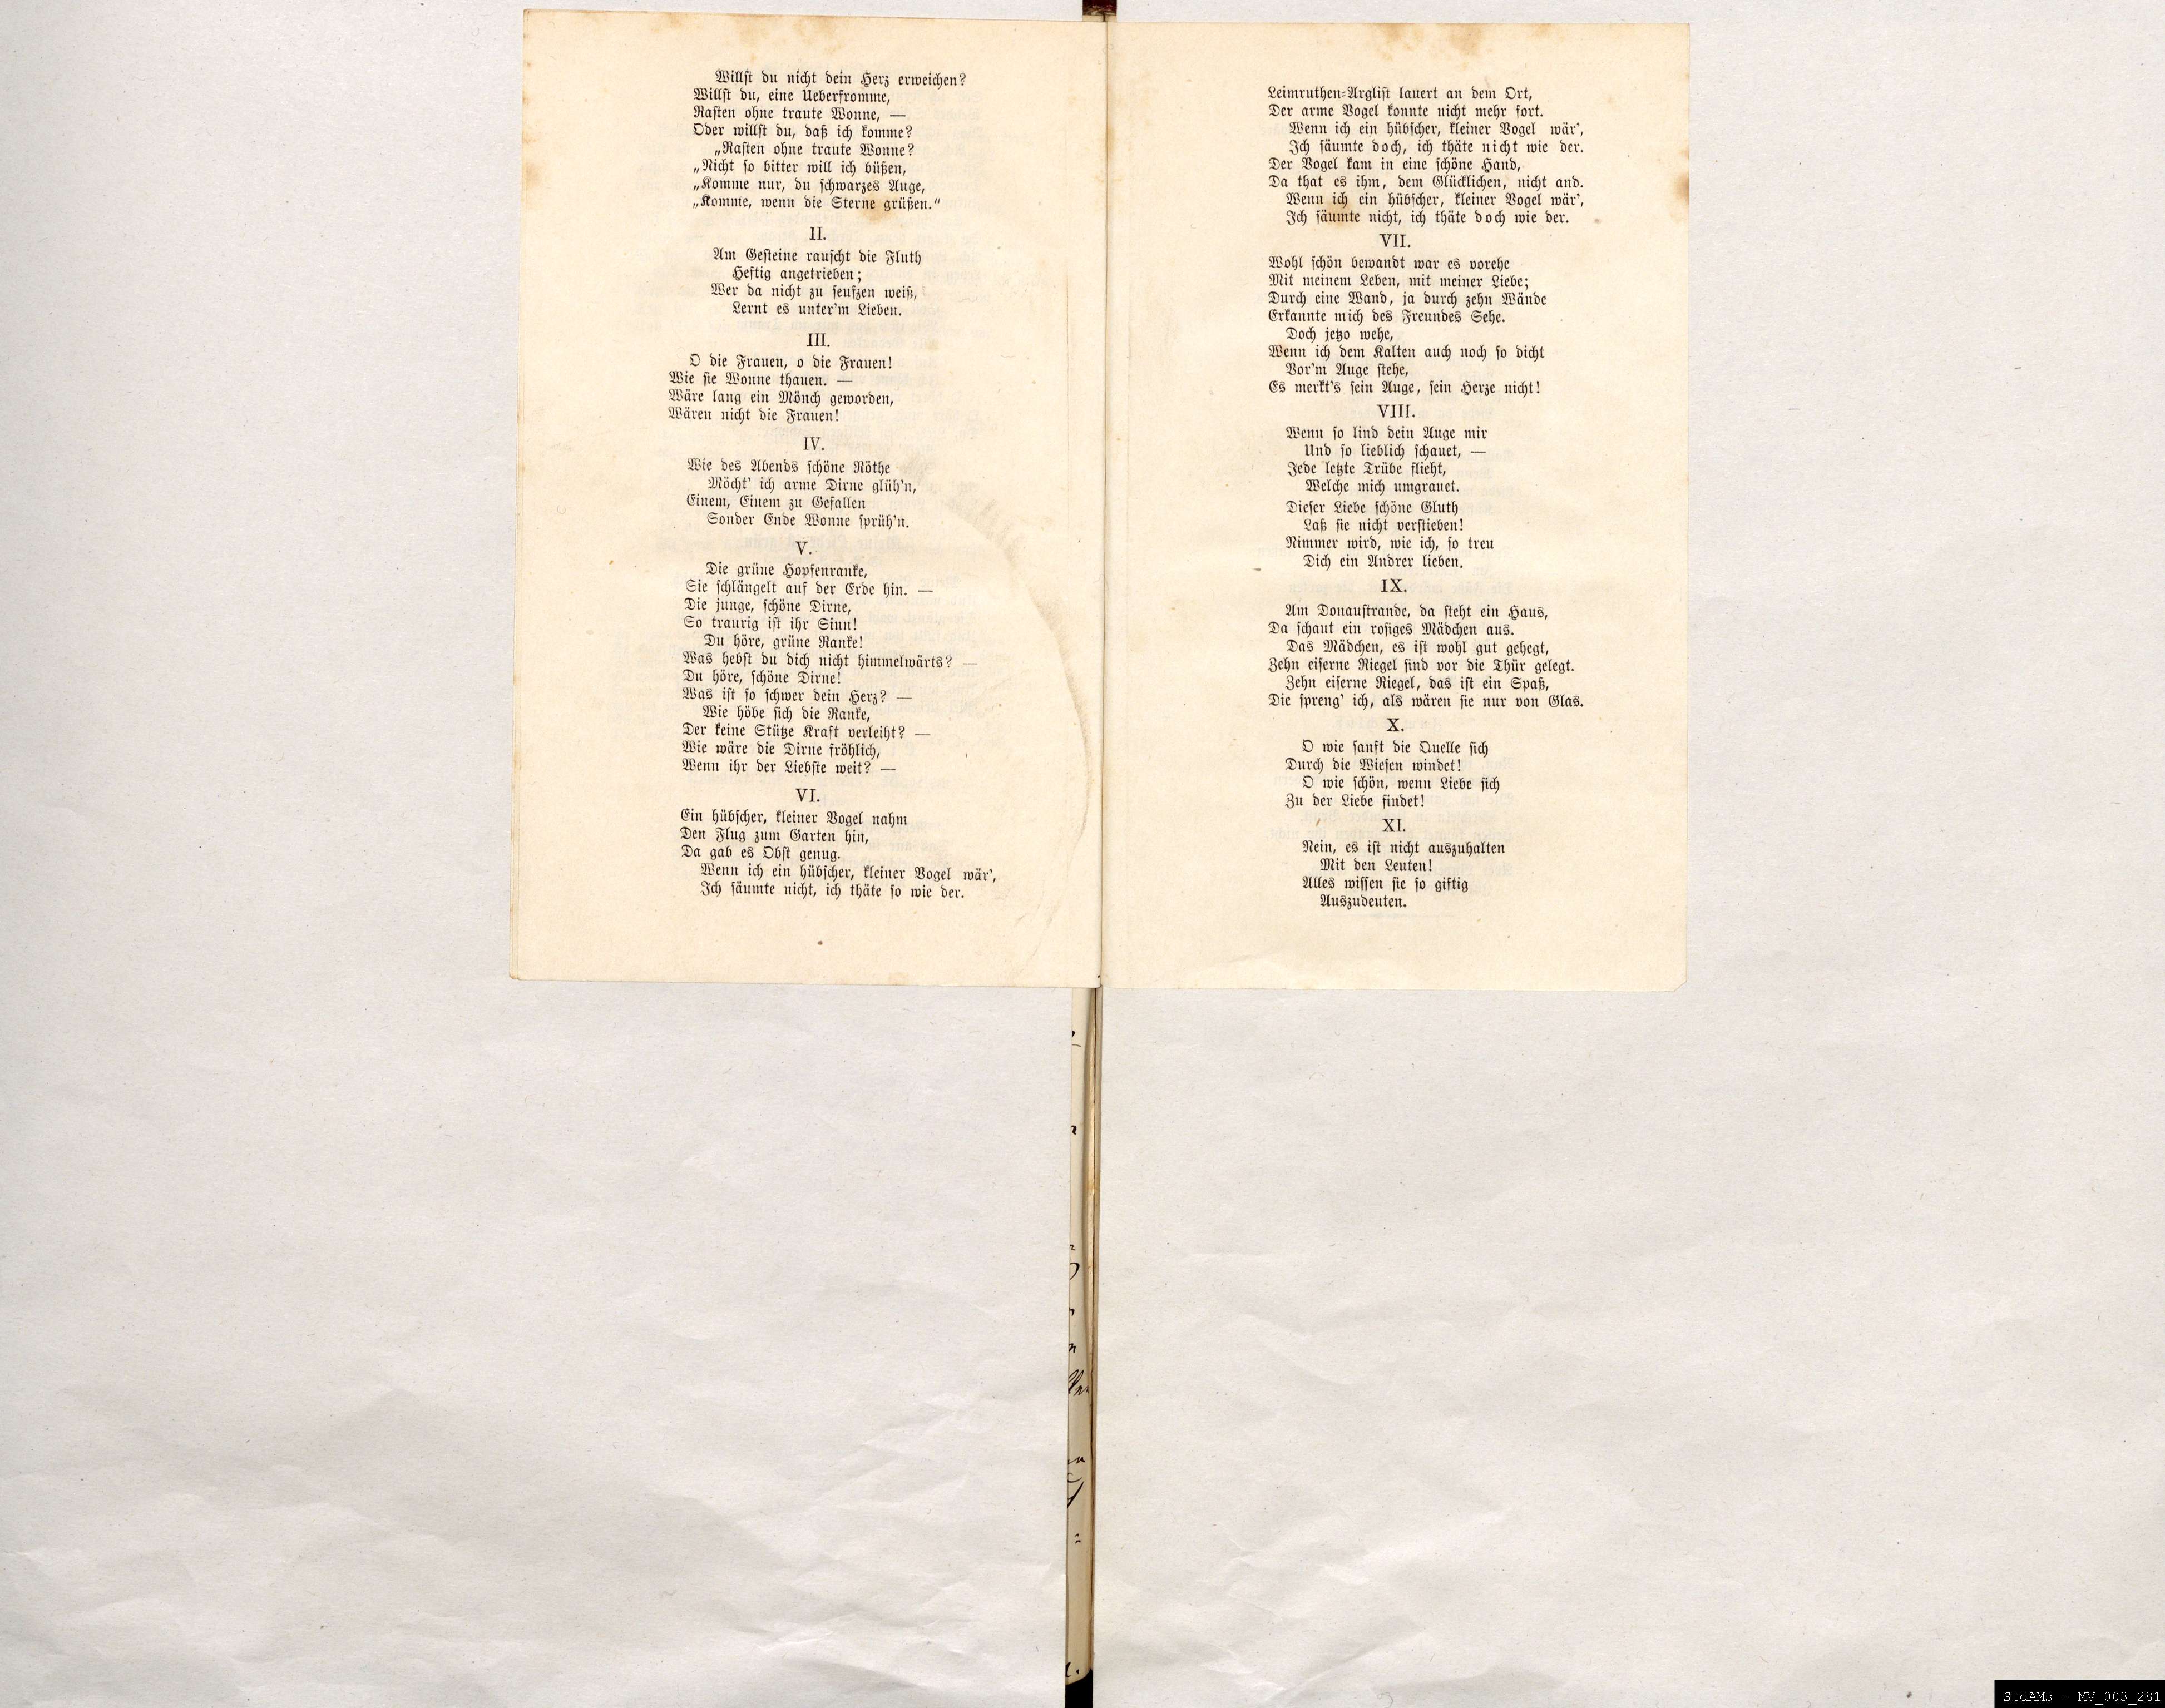 Willst du nicht dein Herz erweichen?
Willst du, eine Ueberfromme,
Rasten ohne traute Wonne, —
Oder willst du, daß ich komme?
„Rasten ohne traute Wonne?
„Nicht so bitter will ich büßen,
„Komme nur, du schwarzes Auge,
„Komme, wenn die Sterne grüßen.“
II.
Am Gesteine rauscht die Fluth
Heftig angetrieben;
Wer da nicht zu seufzen weiß,
Lernt es unter'm Lieben.
III.
O die Frauen, o die Frauen!
Wie sie Wonne thauen. —
Wäre lang ein Mönch geworden,
Wären nicht die Frauen!
IV.
Wie des Abends schöne Röthe
Möcht' ich arme Dirne glüh'n,
Einem, Einem zu Gefallen
Sonder Ende Wonne sprüh'n.
V.
Die grüne Hopfenranke,
Sie schlängelt auf der Erde hin. —
Die junge, schöne Dirne,
So traurig ist ihr Sinn!
Du höre, grüne Ranke!
Was hebst du dich nicht himmelwärts? —
Du höre, schöne Dirne!
Was ist so schwer dein Herz? —
Wie höbe sich die Ranke,
Der keine Stütze Kraft verleiht? —
Wie wäre die Dirne fröhlich,
Wenn ihr der Liebste weit? —
VI.
Ein hübscher, kleiner Vogel nahm
Den Flug zum Garten hin,
Da gab es Obst genug.
Wenn ich ein hübscher, kleiner Vogel wär',
Ich säumte nicht, ich thäte so wie der.
Leimruthen-Arglist lauert an dem Ort,
Der arme Vogel konnte nicht mehr fort.
Wenn ich ein hübscher, kleiner Vogel wär',
Ich säumte doch, ich thäte nicht wie der.
Der Vogel kam in eine schöne Hand,
Da that es ihm, dem Glücklichen, nicht and.
Wenn ich ein hübscher, kleiner Vogel wär',
Ich säumte nicht, ich thäte doch wie der.
VII.
Wohl schön bewandt war es vorehe
Mit meinem Leben, mit meiner Liebe;
Durch eine Wand, ja durch zehn Wände
Erkannte mich des Freundes Sehe.
Doch jetzo wehe,
Wenn ich dem Kalten auch noch so dicht
Vor'm Auge stehe,
Es merkt's sein Auge, sein Herze nicht!
VIII.
Wenn so lind dein Auge mir
Und so lieblich schauet, —
Jede letzte Trübe flieht,
Welche mich umgrauet.
Dieser Liebe schöne Gluth
Laß sie nicht verstieben!
Nimmer wird, wie ich, so treu
Dich ein Andrer lieben.
IX.
Am Donaustrande, da steht ein Haus,
Da schaut ein rosiges Mädchen aus.
Das Mädchen, es ist wohl gut gehegt,
Zehn eiserne Riegel sind vor die Thür gelegt.
Zehn eiserne Riegel, das ist ein Spaß,
Die spreng' ich, als wären sie nur von Glas.
X.
O wie sanft die Quelle sich
Durch die Wiesen windet!
O wie schön, wenn Liebe sich
Zu der Liebe findet!
XI.
Nein, es ist nicht auszuhalten
Mit den Leuten!
Alles wissen sie so giftig
Auszudeuten.
StdAMs - MV_003_281